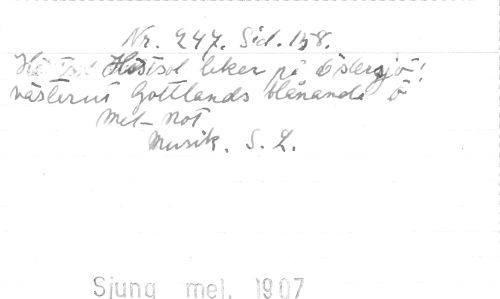 Nr. 247. Sid. 158.
Höstsol leker på Östersjö!
västerut Gottlands blånande ö
Mel- Not
Musik. S. L.
Sjung mel. 1907